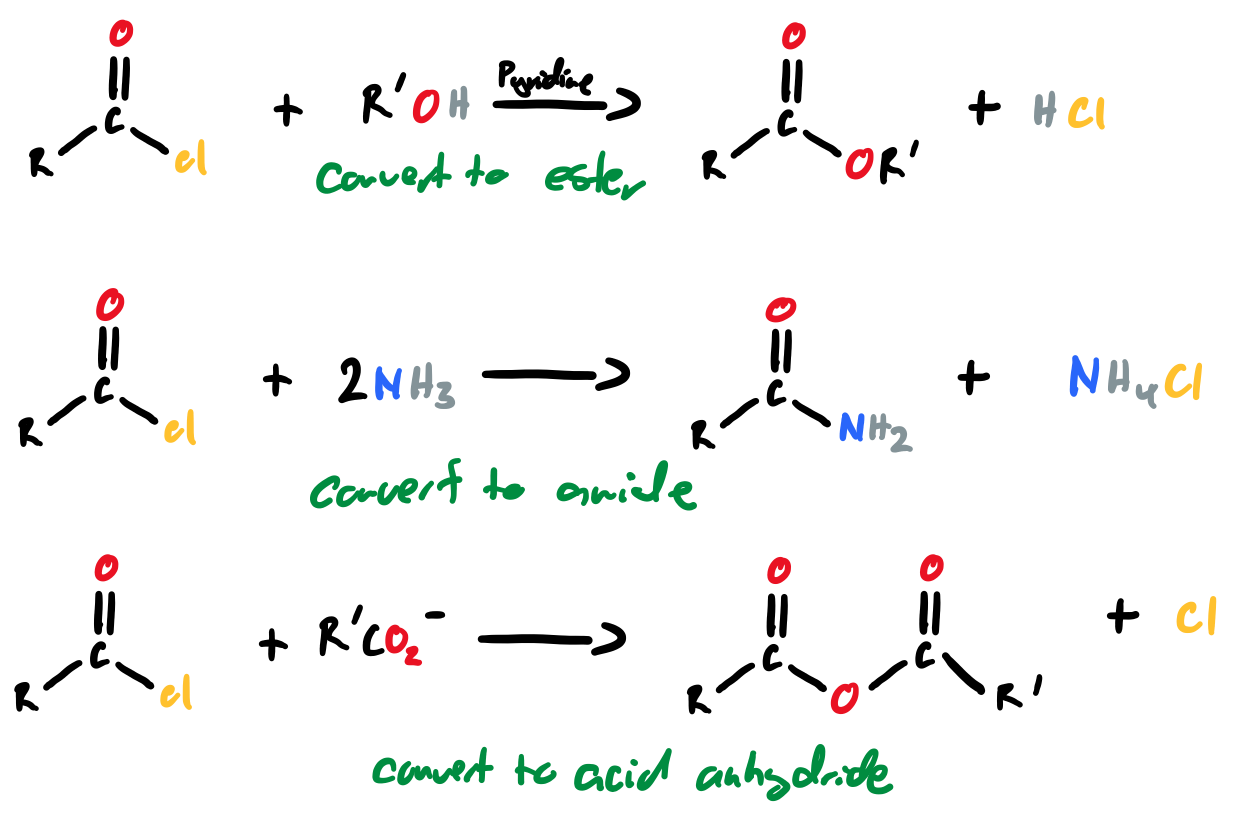 O O
R C Cl + R'OH Pyridine R C OR' + HCl
convert to ester
O O
R C Cl + 2NH3 R C NH2 + NH4Cl
convert to amide
O O O
R C Cl + R'CO2- R C O C R' + Cl
convert to acid anhydride